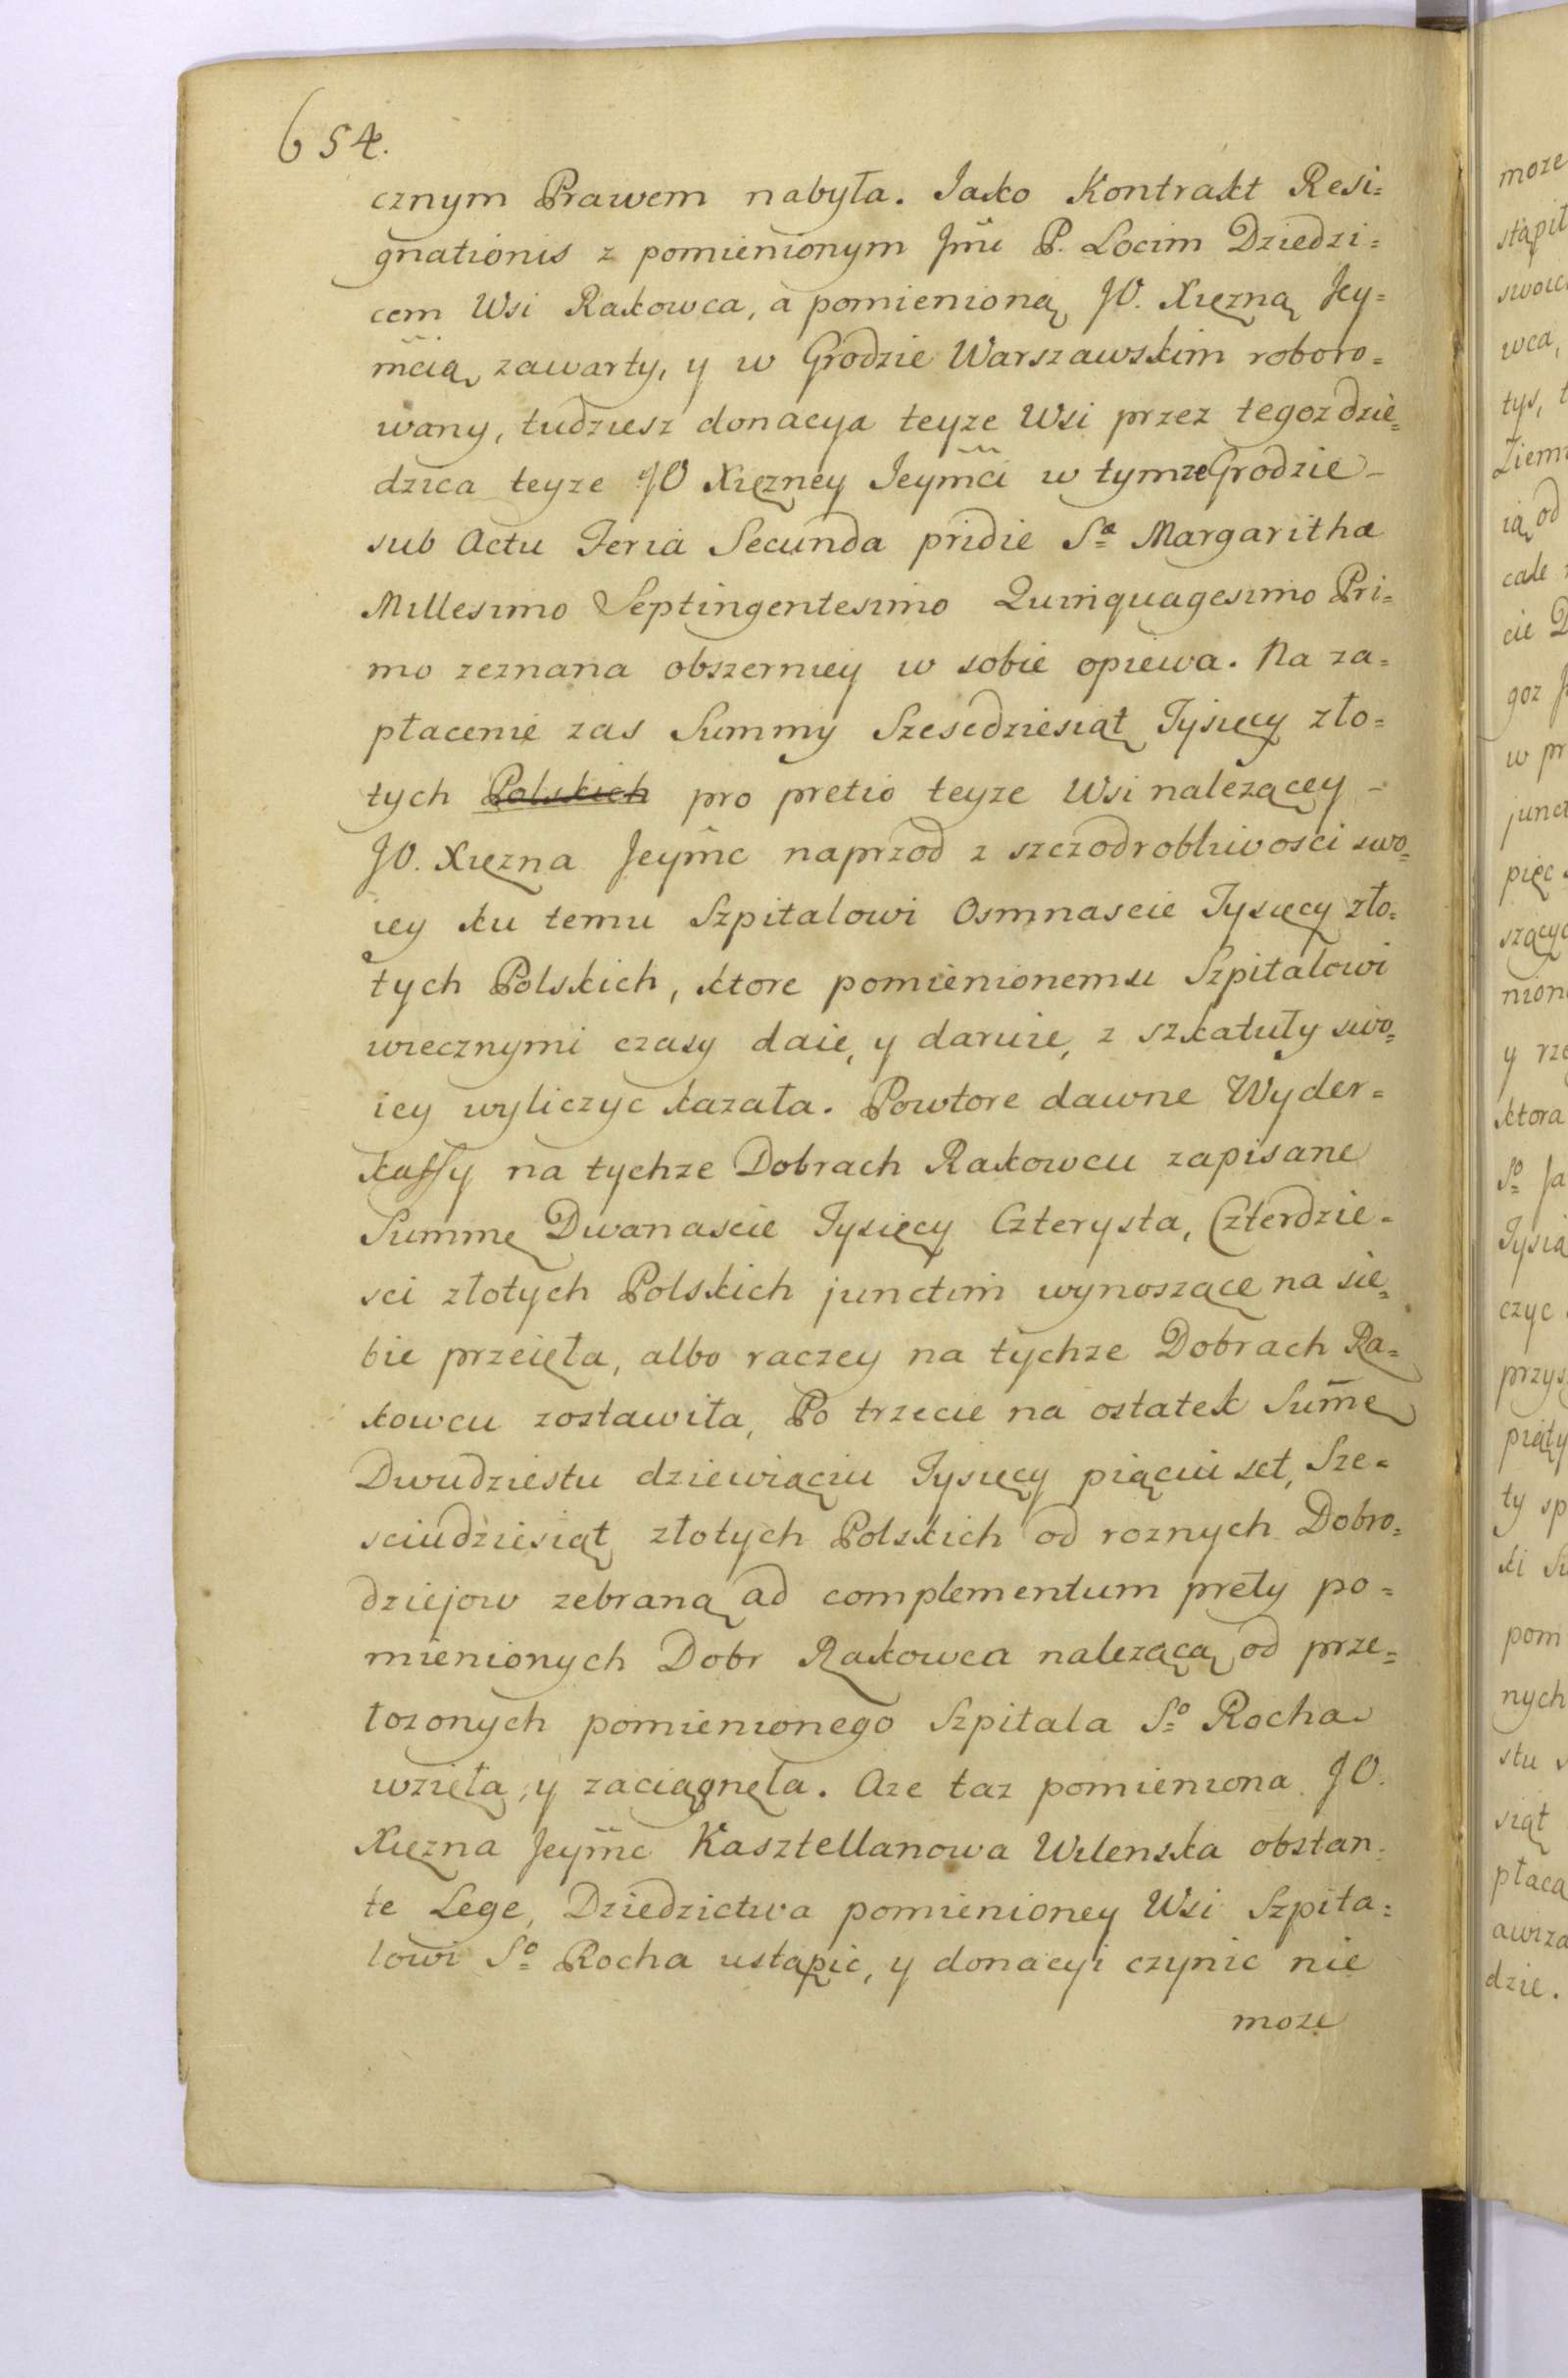 654.
cznym Prawem nabyła. Jako Kontrakt Resi=
gnationis z pomienionym Jm̃ P. Locim Dziedzi=
cem Wsi Rakowca, à pomienioną JO. Xięzną Jey=
m̃cią zawarty, y w Grodzie Warszawskim roboro=
wany, tudziesz donacya teyze Wsi przez tegoz dzie=
dzica teyze JO Xięzney Jeym̃ci w tymze Grodzie –
sub Actu Feria Secunda pridie Sæ Margaritha
Millesimo Septingentesimo Quinquagesimo Pri=
mo zeznana obszerniey w sobie opiewa. Na za=
płacenie zas Summy Szescdziesiąt Tysięcy zło=
tych Polskich pro pretio teyze Wsi nalezącey –
JO. Xięzna Jeym̃c naprzod z szczodrobliwosci swo=
iey ku temu Szpitalowi Osmnascie Tysięcy zło=
tych Polskich, ktore pomienionemu Szpitalowi
wiecznymi czasy daie, y daruie, z szkatuły swo=
iey wyliczyc kazała. Powtore dawne Wyder=
kassy na tychze Dobrach Rakowcu zapisane
Summę Dwanascie Tysięcy Czterysta, Czterdzie=
sci złotych Polskich junctim wynoszące na sie=
bie przeięła, albo raczey na tychze Dobrach Ra=
kowcu zostawiła, Po trzecie na ostatek Sum̃ę
Dwudziestu dziewiąciu Tysięcy piąciu set, Sze=
sciudziesiąt złotych Polskich od roznych Dobro=
dziejow zebraną ad complementum prety po=
mienionych Dobr Rakowca nalezącą od prze=
łozonych pomienionego Szpitala So Rocha
wzięła, y zaciągnęła. Aze taz pomieniona JO.
Xięzna Jeym̃c Kasztellanowa Wilenska obstan=
te Lege, Dziedzictwa pomienioney Wsi Szpita=
lowi So Rocha ustąpic, y donacyi czynic nie
moze
moze
stąpił
swoic
wca,
tys, t
Ziem
ią od
cale
cie D
goz J
w pr
junct
pięc
szącyc
nion
y rze
ktora
So Ja
Tysią
czyc
przys
piąty
ty sp
ki Su
pom
nych
stu
siąt
płaca
awiza
dzie.